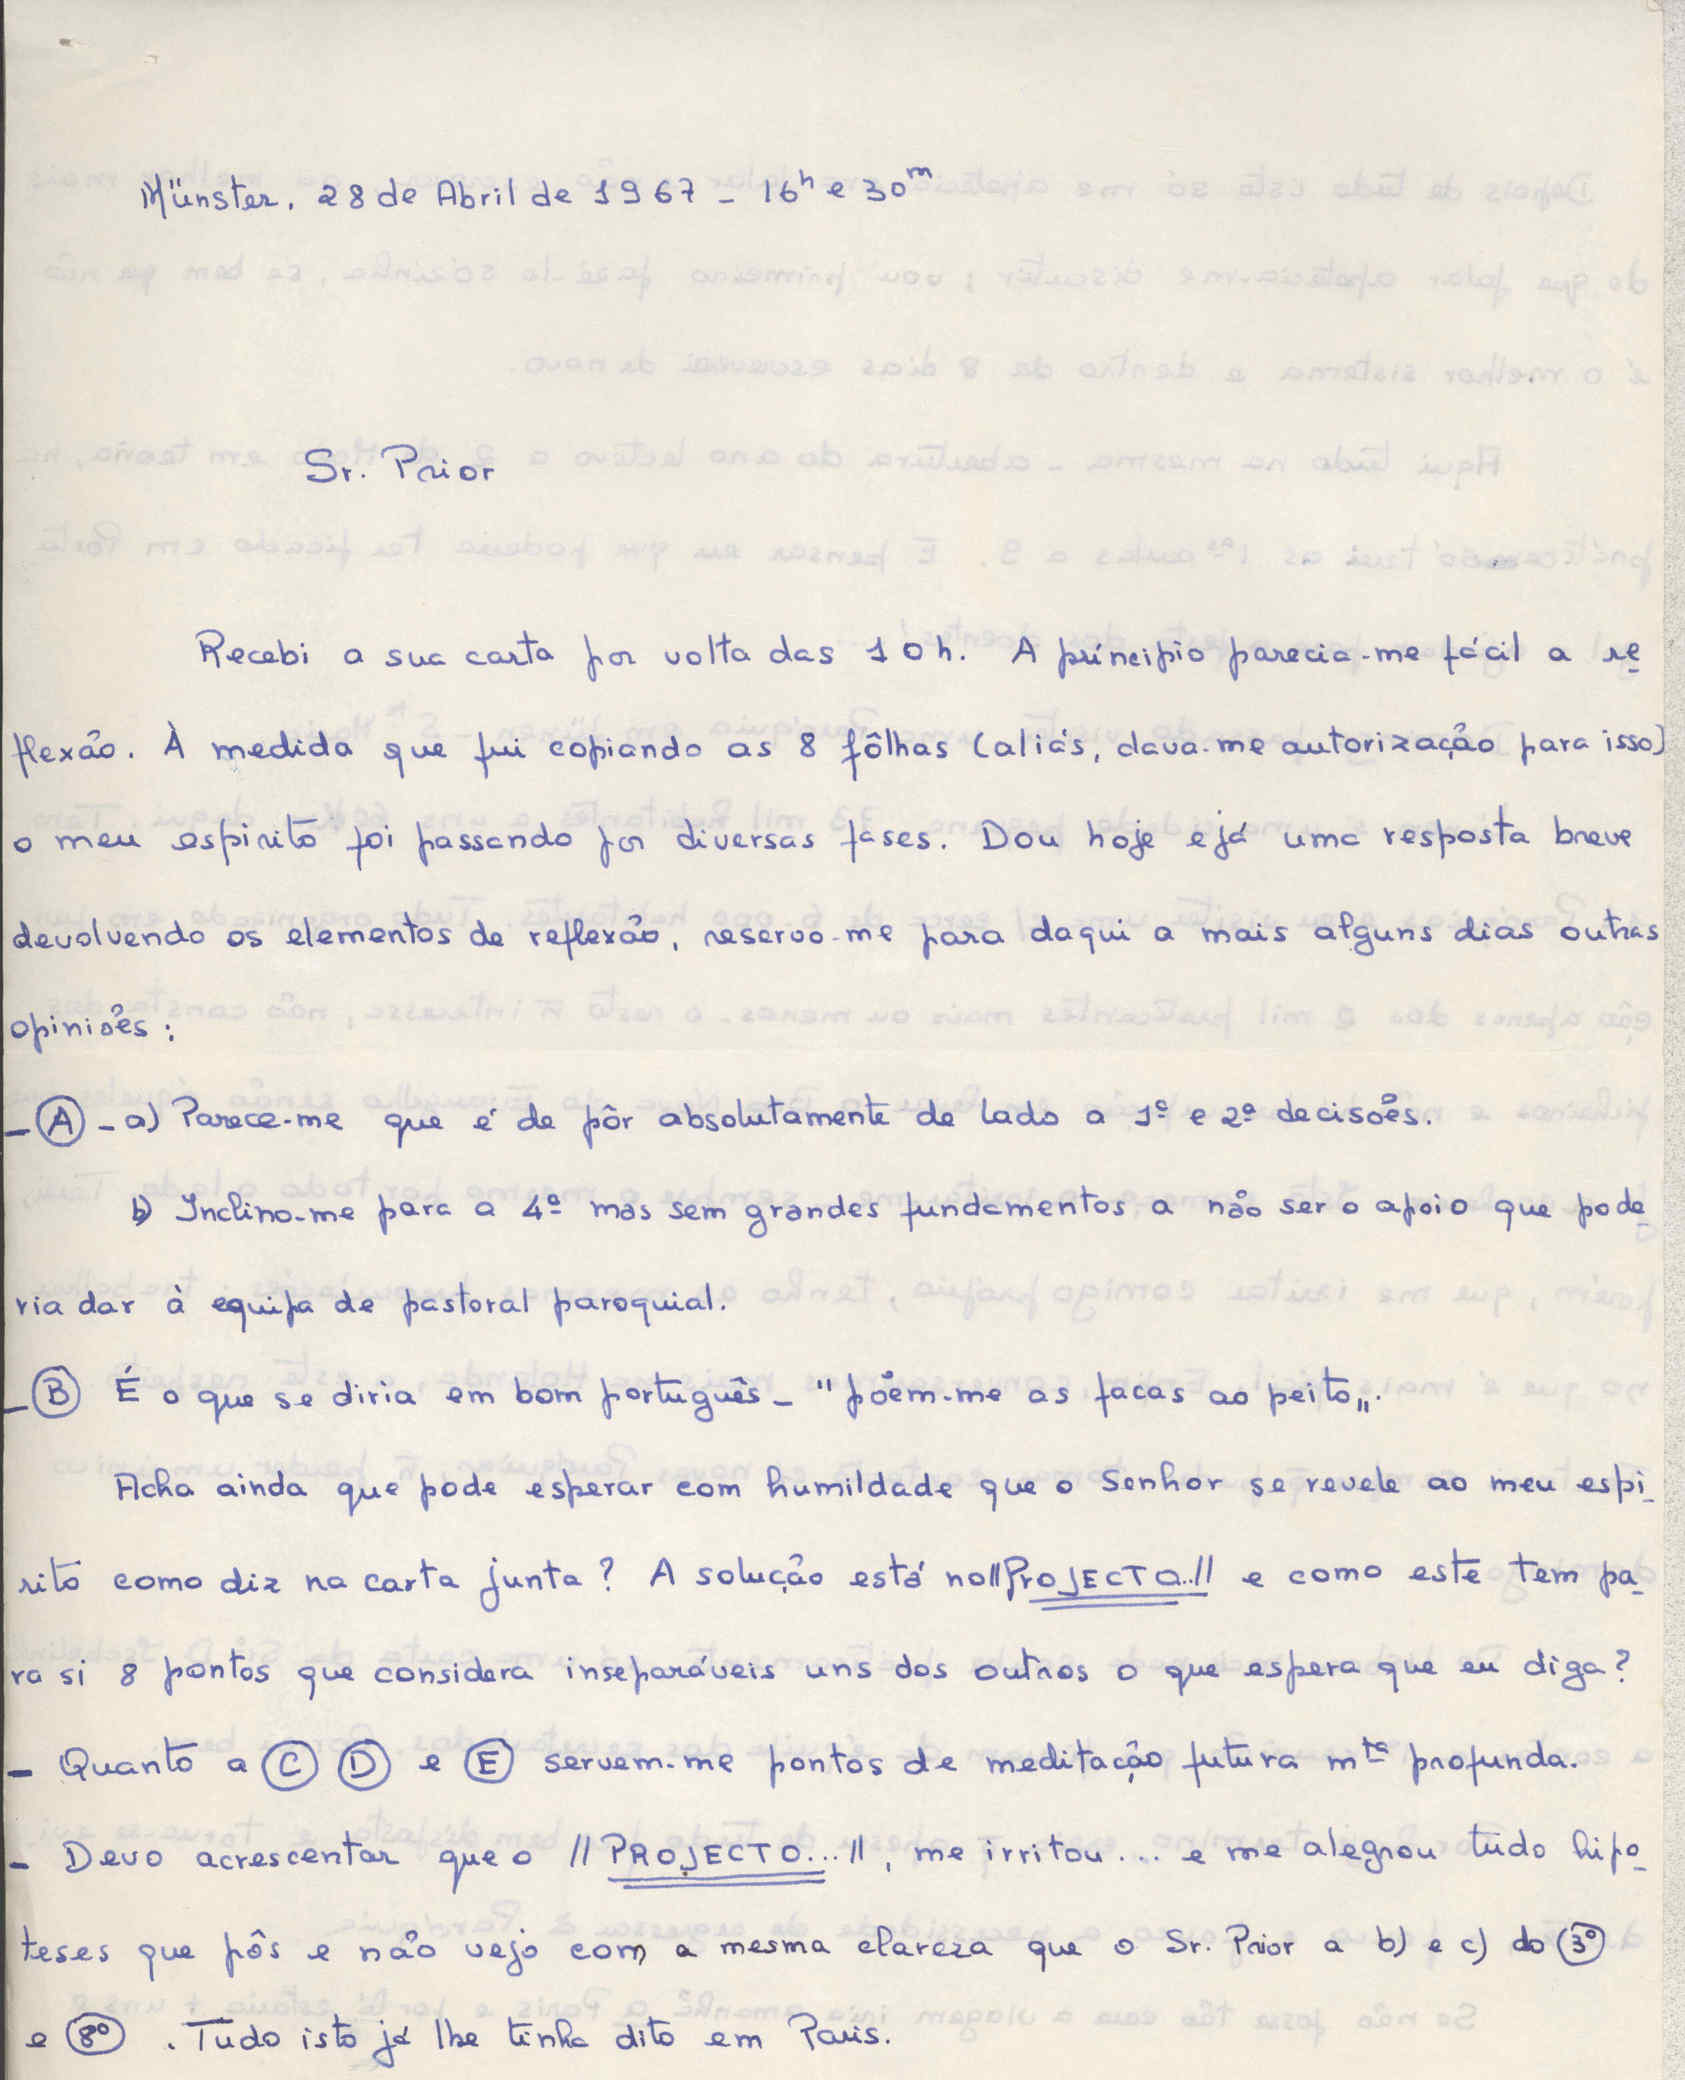 Münster, 28 de Abril de 1967 - 16h e 30m
Sr. Prior
Recebi a sua carta por volta das 10h. A príncipio parecia-me fácil a re
flexão. À medida que fui copiando as 8 fôlhas (aliás, dava-me autorização para isso)
o meu espirito foi passando por diversas fases. Dou hoje e já uma resposta breve
devolvendo os elementos de reflexão, reservo-me para daqui a mais alguns dias outras
opiniões:
- A - a) Parece-me que é de pôr absolutamente de lado a 1ª e 2ª decisões.
b) Inclino-me para a 4ª mas sem grandes fundamentos a não ser o apoio que pode-
ria dar à equipa de pastoral paroquial.
- B É o que se diria em bom português - "põem-me as facas ao peito".
Acha ainda que pode esperar com humildade que o Senhor se revele ao meu espi-
rito como diz na carta junta? A solução está no "PROJECTO.." e como este tem pa-
ra si 8 pontos que considera inseparáveis uns dos outros o que espera que eu diga?
- Quanto a C D e E servem-me pontos de meditação futura mto profunda.
- Devo acrescentar que o "PROJECTO...", me irritou... e me alegrou tudo hipo-
teses que pôs e não vejo com a mesma clareza que o Sr. Prior a b) e c) do 3º
e 8º. Tudo isto já lhe tinha dito em Paris.